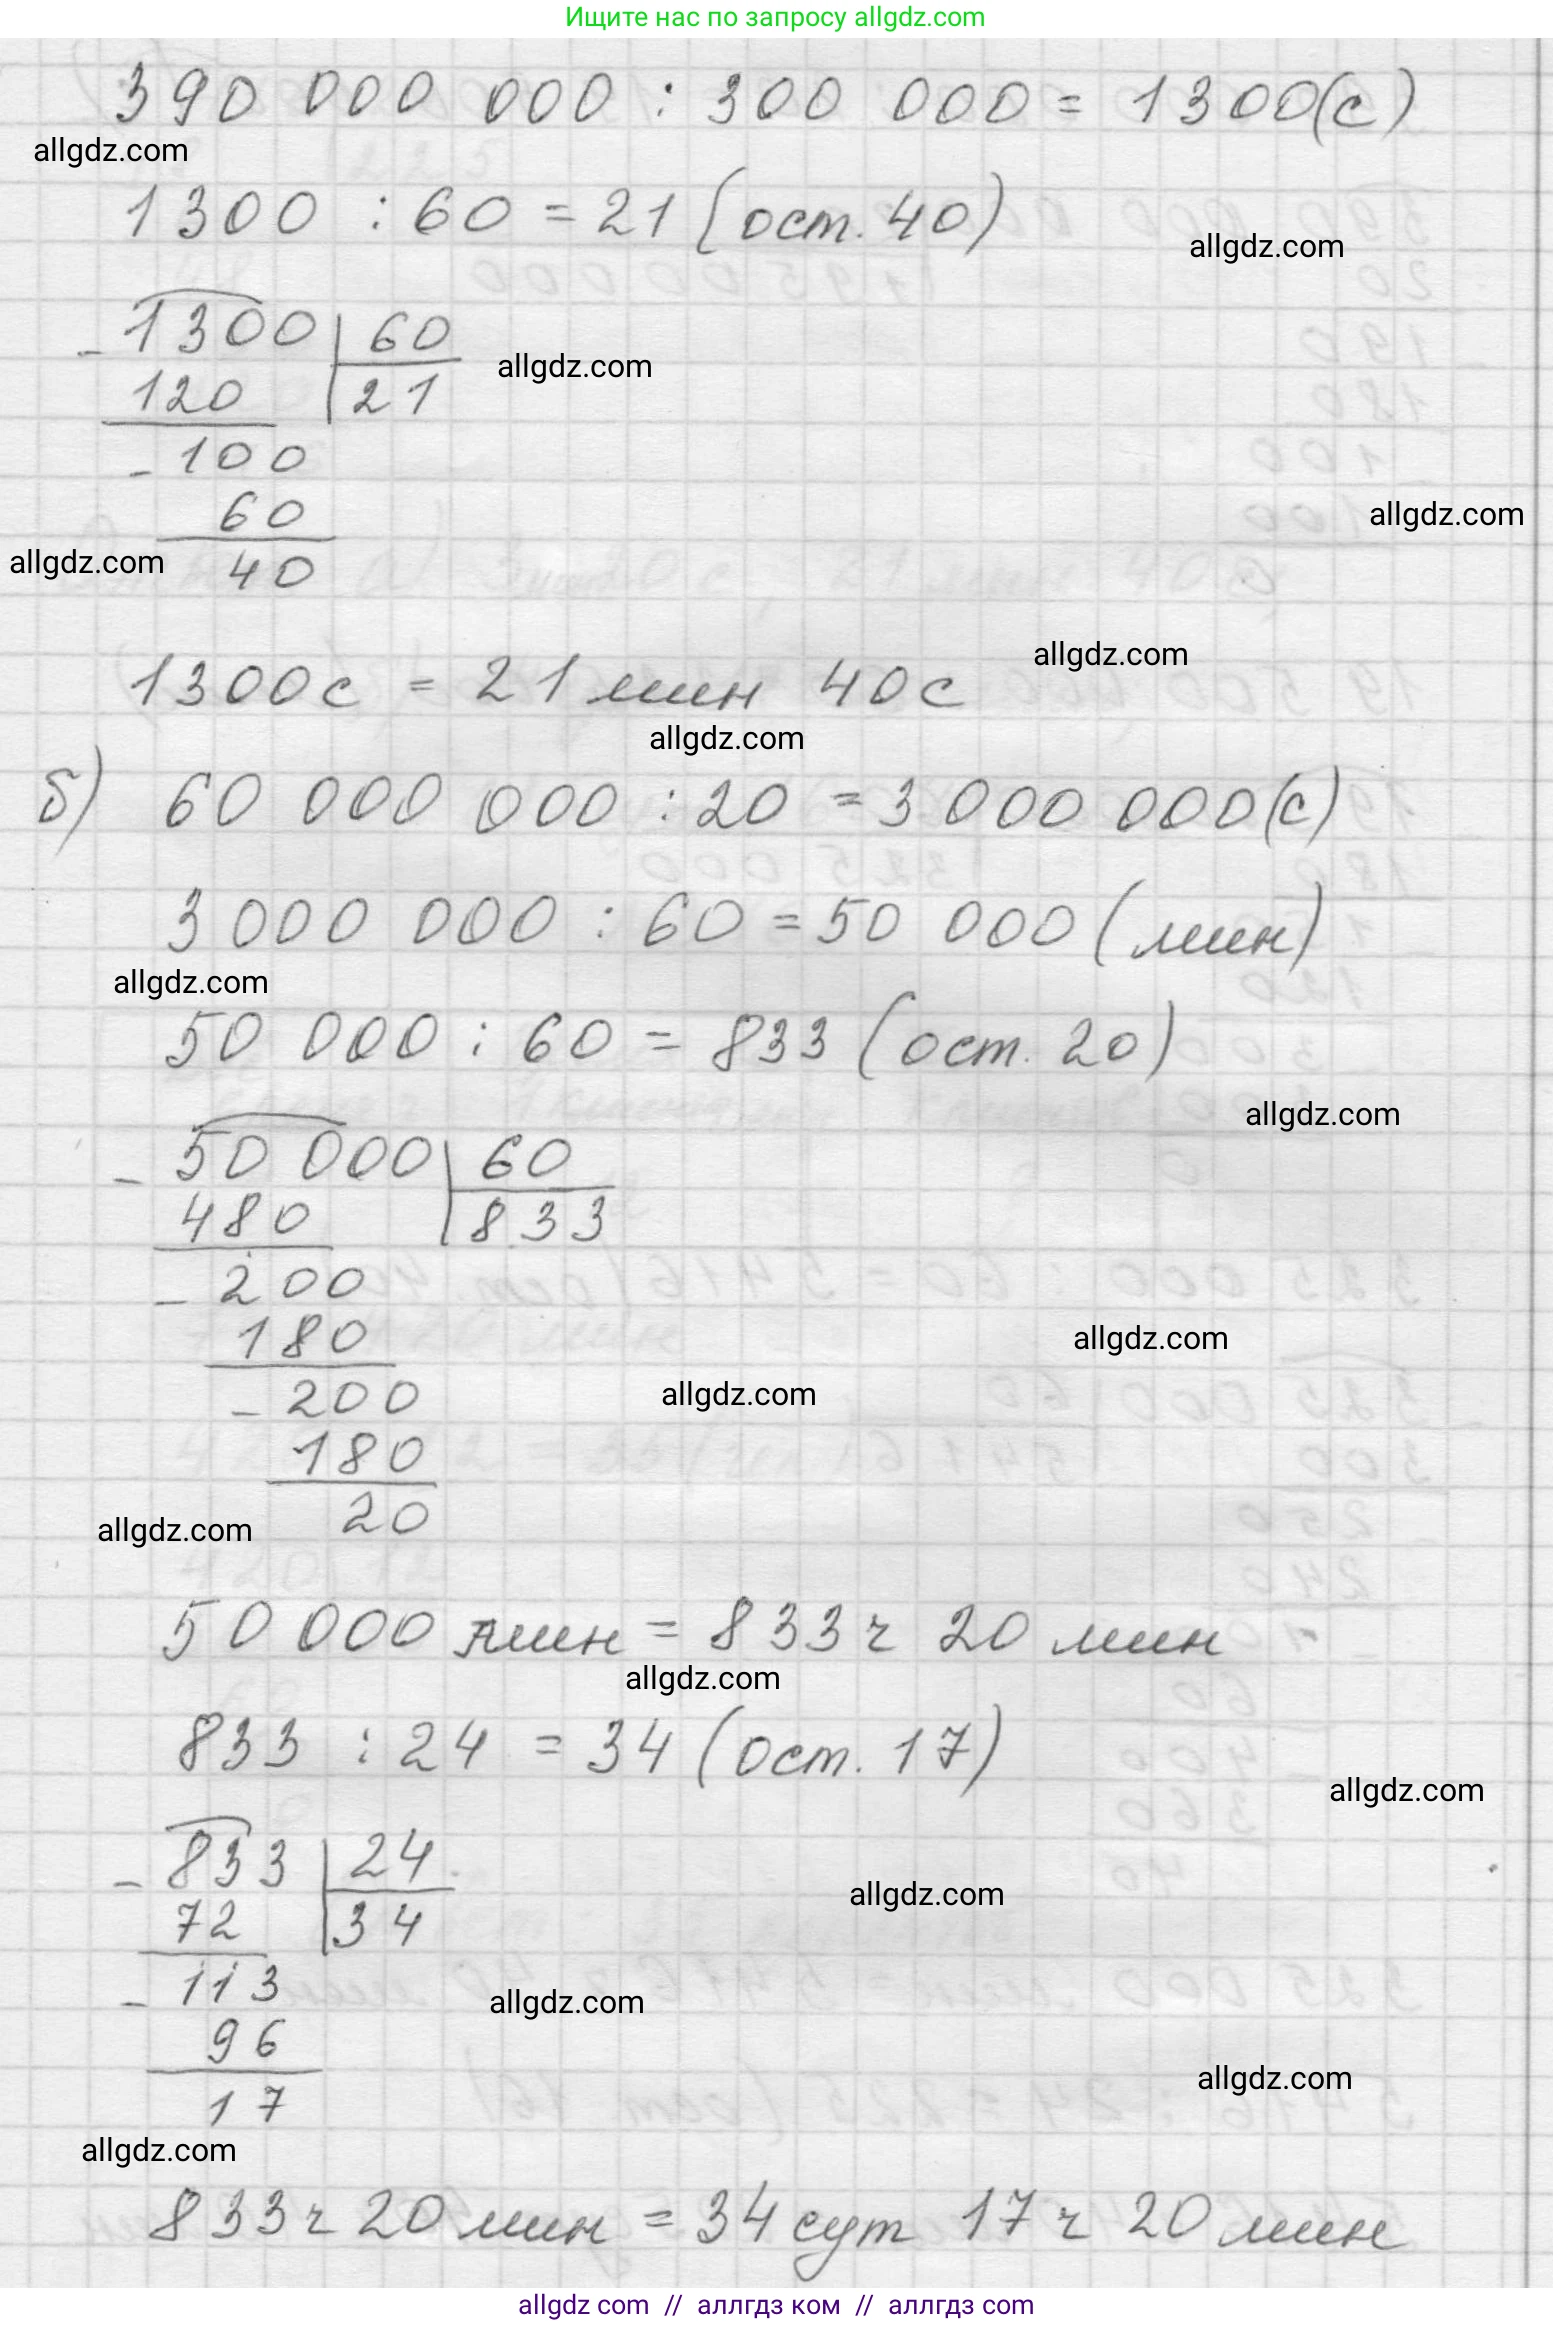 Ищите нас по запросу allgdz.com
390 000 000 : 300 000 = 1300(с)
allgdz.com
1300 : 60 = 21 (ост. 40)
allgdz.com
- 1300 | 60
allgdz.com
120 | 21
- 100
60
allgdz.com
allgdz.com
40
allgdz.com
1300с = 21 мин 40с
allgdz.com
б) 60 000 000 : 20 = 3 000 000(с)
3 000 000 : 60 = 50 000 (мин)
allgdz.com
50 000 : 60 = 833 (ост. 20)
allgdz.com
- 50 000 | 60
480 | 833
- 200
180
allgdz.com
- 200
allgdz.com
180
20
allgdz.com
50 000 мин = 833 ч 20 мин
allgdz.com
833 : 24 = 34 (ост. 17)
allgdz.com
- 833 | 24
allgdz.com
72 | 34
- 113
allgdz.com
96
allgdz.com
17
allgdz.com
833 ч 20 мин = 34 сут 17 ч 20 мин
allgdz com // аллгдз ком // аллгдз com